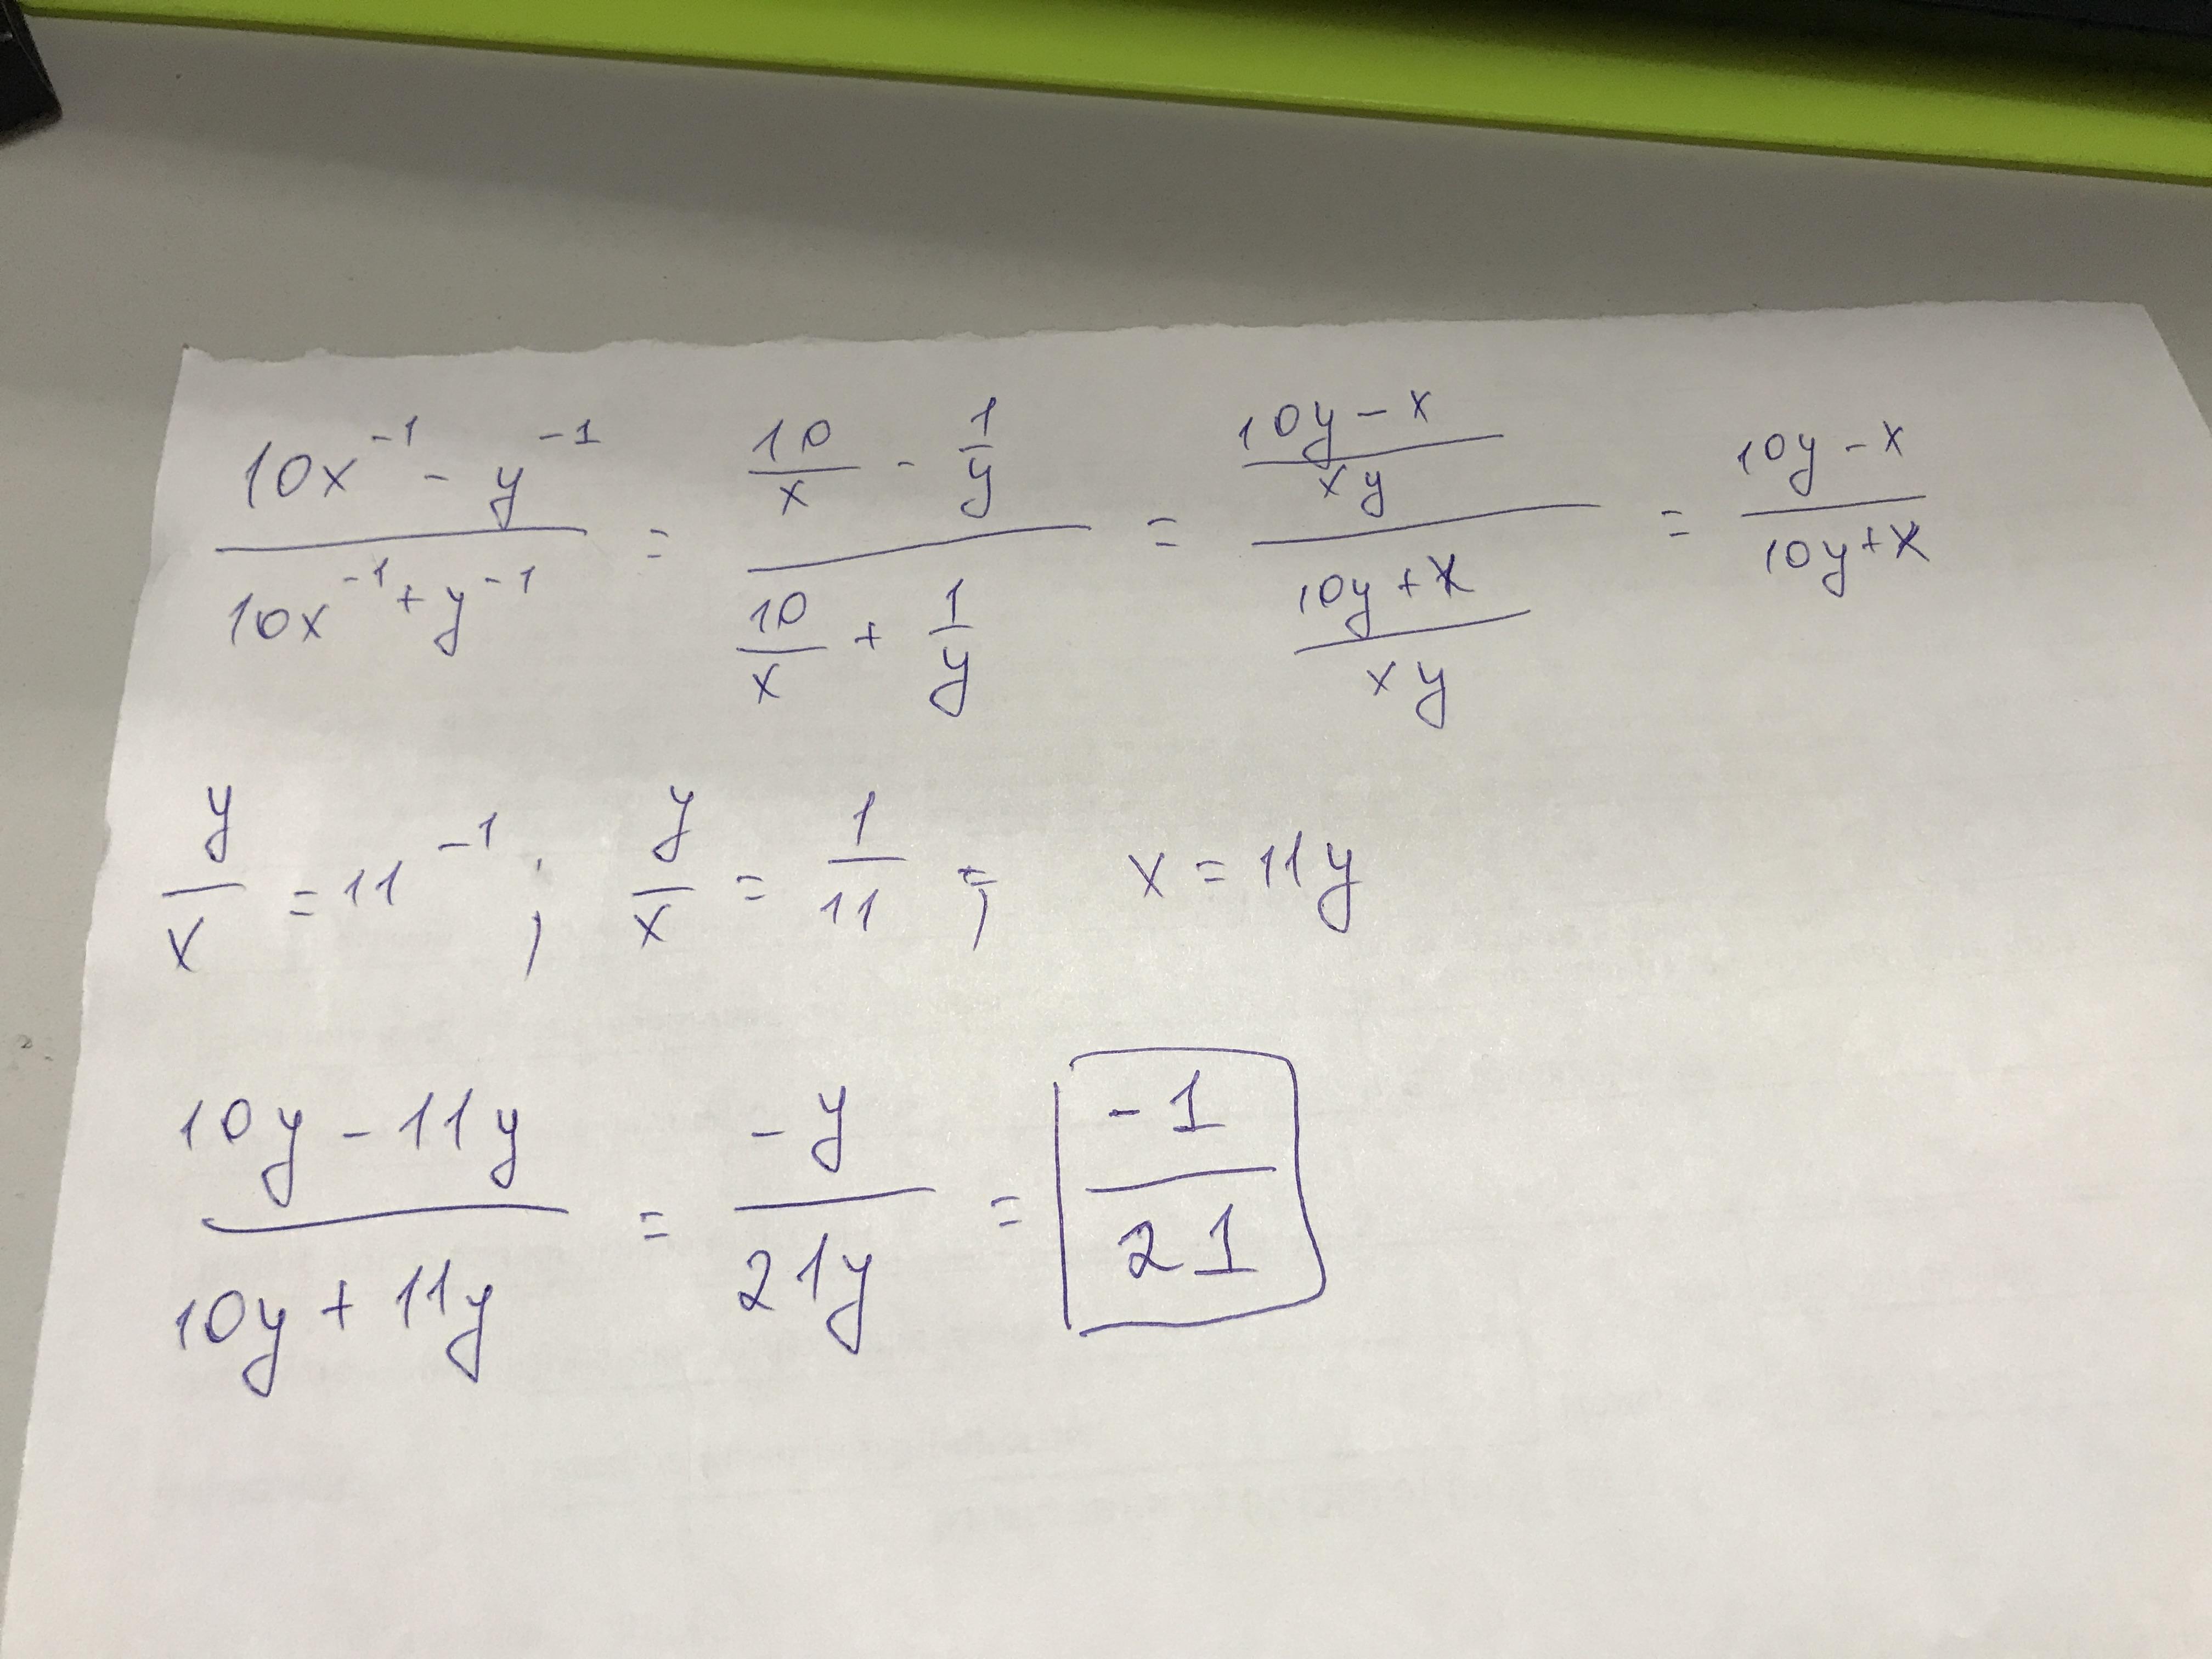 (10x⁻¹ - y⁻¹)/(10x⁻¹ + y⁻¹) = (10/x - 1/y)/(10/x + 1/y) = ((10y - x)/(xy))/((10y + x)/(xy)) = (10y - x)/(10y + x)
y/x = 11⁻¹ ; y/x = 1/11 ; x = 11y
(10y - 11y)/(10y + 11y) = -y/21y = -1/21